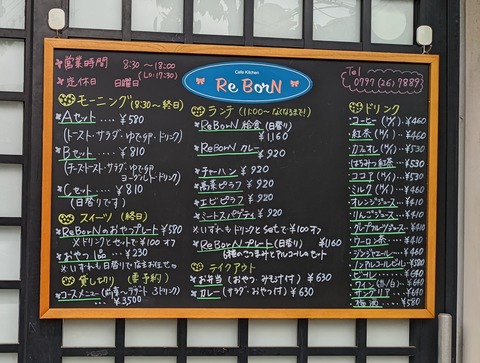 営業時間 8:30~18:00
(L.O.17:30)
定休日 日曜日
Cafe Kitchen
Re BorN
Tel
0797(26)7889
モーニング(8:30~終日)
Aセット…¥580
(トースト・サラダ・ゆで卵・ドリンク)
Bセット…¥810
(チーズトースト・サラダ・ゆで卵
ヨーグルト・ドリンク)
Cセット…¥810
(日替りです)
スイーツ(終日)
ReBorNのおやつプレート¥580
※ドリンクとセットで¥100オフ
おやつ1品…¥230
※いずれも日替りで
貸し切り(要予約)
コースメニュー(前菜~デザート 3ドリンク)
…¥3500
ランチ(11:00~なくなるまで!)
ReBorN 給食(日替り)
¥1160
ReBorN カレー
¥920
チャーハン ¥920
高菜ピラフ ¥920
エビピラフ ¥920
ミートスパゲティ ¥920
※いずれもドリンクとSetで¥100オフ
ReBorNプレート(日替り) ¥1160
テイクアウト
お弁当(おやつ・みそ汁付) ¥630
カレー(サラダ・おやつ付) ¥630
ドリンク
コーヒー(H/I)…¥460
紅茶(H/I)…¥460
カフェオレ(H/I)…¥530
はちみつ紅茶…¥530
ココア(H/I)…¥530
ミルク(H/I)…¥460
オレンジジュース…¥410
りんごジュース…¥410
グレープフルーツジュース…¥410
ウーロン茶…¥410
ジンジャエール…¥460
ノンアルコールビール…¥580
ビール…¥640
ワイン(赤/白)…¥640
サングリア…¥640
梅酒…¥580